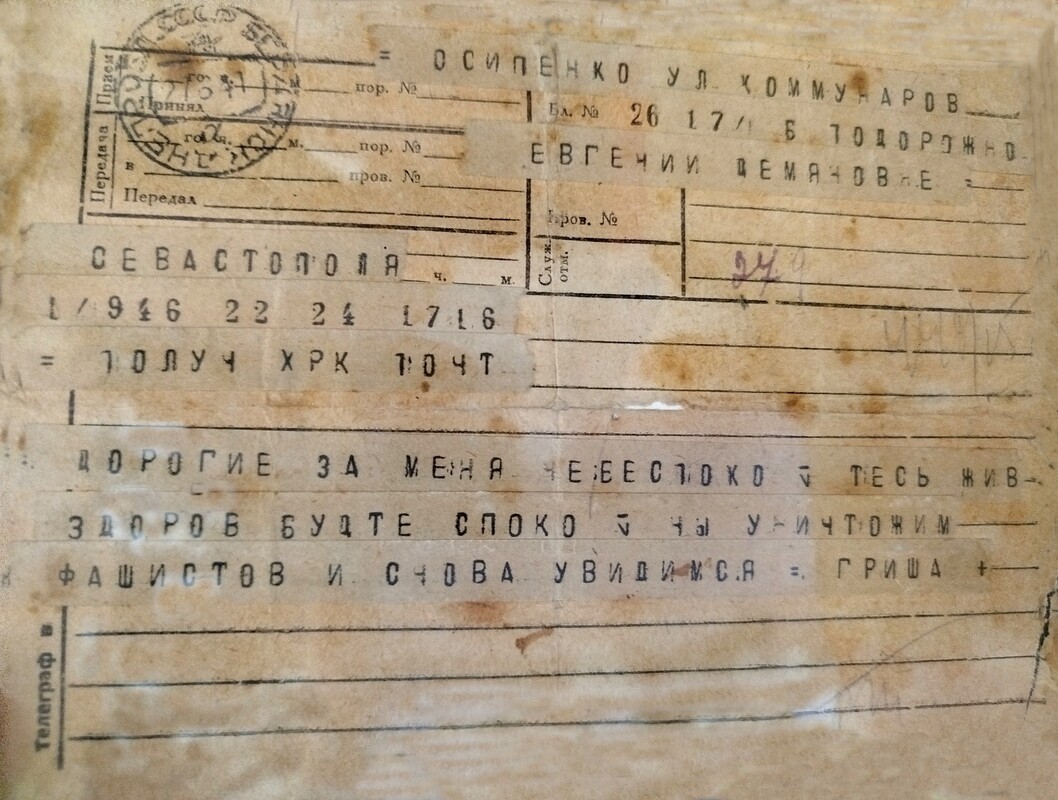 = ОСИПЕНКО УЛ КОММУНАРОВ
Прием
го ч.
пор. №
Принял
Бл. №
26 17/1 Б ПОДОРОЖНО
Передача
го ч. м.
пор. №
ЕВГЕНИИ ДЕМЯНОВНЕ =
в
пров. №
Передал
Пров. №
Служ. отм.
СЕВАСТОПОЛЯ
ч. м.
279
1/946 22 24 1716
= ПОЛУЧ ХРК ПОЧТ
ДОРОГИЕ ЗА МЕНЯ НЕБЕСПОКОЙТЕСЬ ЖИВ
ЗДОРОВ БУДТЕ СПОКОЙНЫ УНИЧТОЖИМ
ФАШИСТОВ И СНОВА УВИДИМСЯ = ГРИША +
Телеграф в